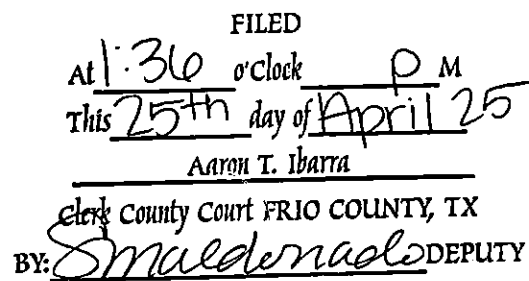 FILED
At 1:36 o'Clock P M
This 25th day of April 25
Aaron T. Ibarra
Clerk County Court FRIO COUNTY, TX
BY: Smaldonado DEPUTY